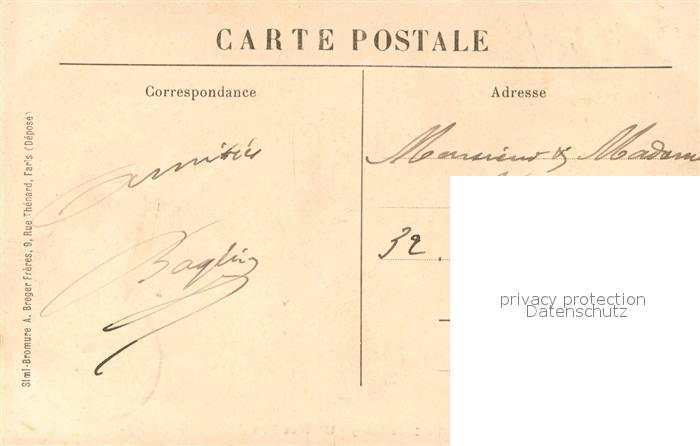 CARTE POSTALE
Correspondance
Adresse
Amitiés
Monsieur & Madame
32.
privacy protection
Datenschutz
Simi-Bromure A. Breger Frères, 9, Rue Thénard, Paris (Déposé)